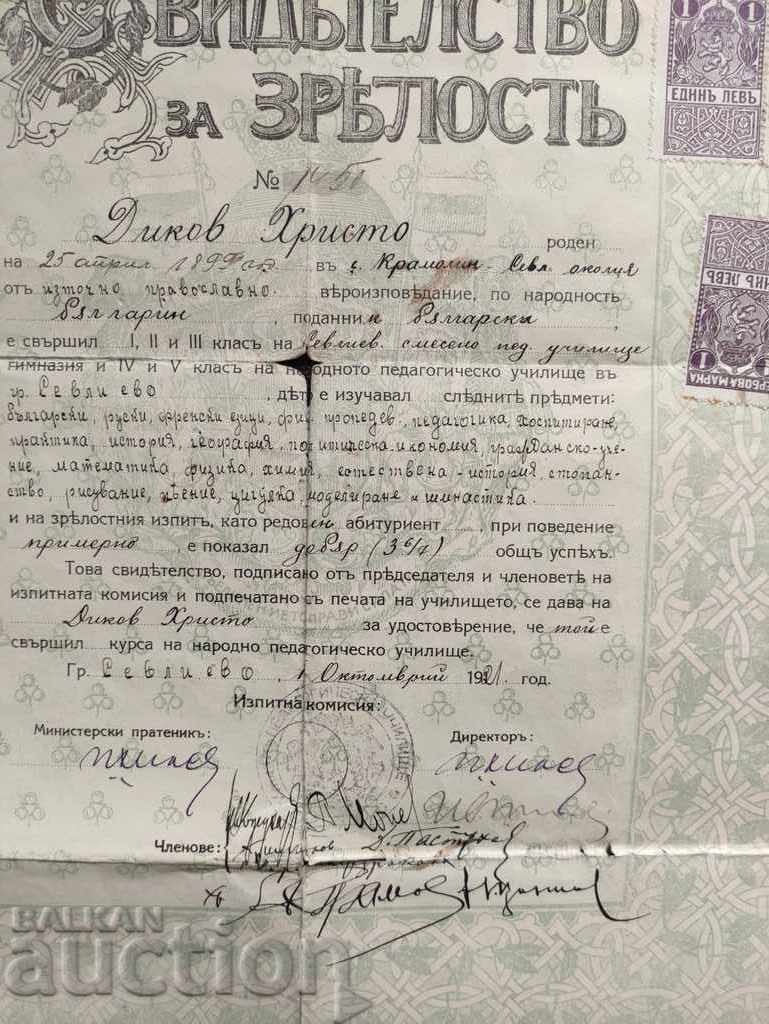 СВИДѢТЕЛСТВО
ЗА ЗРѢЛОСТЬ
1 ЕДИНЪ ЛЕВЪ 1
№ 1450
Диков Христо роден
на 25 април 1899 год въ с. Крамолин - Севл. околия
отъ източно православно вѣроизповѣдание, по народность
българин, поданник български,
е свършил I, II и III класъ на Севлиев. смесено пед. училище
гимназия и IV и V класъ на народното педагогическо училище въ
гр. Севлиево, дѣто е изучавал слѣднитѣ прѣдмети:
български, руски, френски езици, фил. пропедев., педагогика, хоспитиране,
практика, история, география, политическа икономия, гражданско-уче-
ние, математика, физика, химия, естествена-история, стопан-
ство, рисуване, пѣение, цигулка, моделиране и гимнастика.
и на зрѣлостния изпитъ, като редовен абитуриент, при поведение
примерно, е показал добър (3 6/7) общъ успѣхъ.
Това свидѣтелство, подписано отъ прѣдседателя и членоветѣ на
изпитната комисия и подпечатано съ печата на училището, се дава на
Диков Христо за удостовѣрение, че той е
свършил курса на народно педагогическо училище.
Гр. Севлиево, 1 Октомврий 1921 год.
Изпитна комисия:
Министерски пратеникъ: Директоръ:
Членове: Д. Пастухов
БАЛКАН
Аукцион